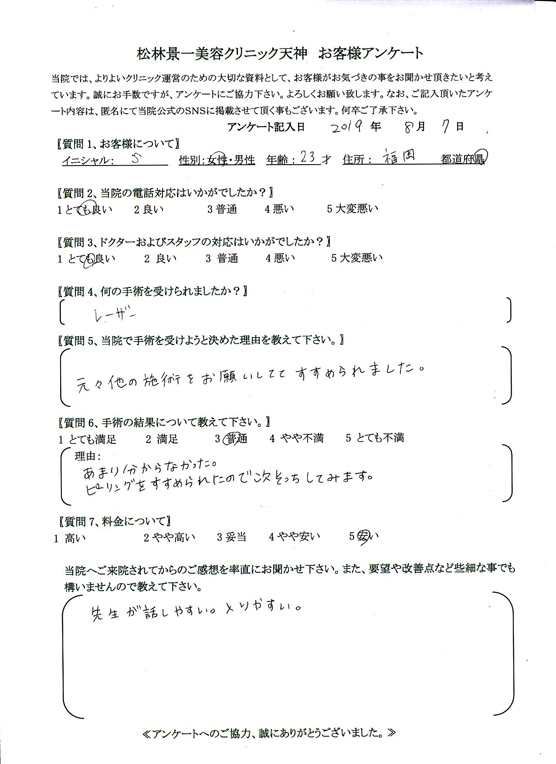 松林景一美容クリニック天神 お客様アンケート
当院では、よりよいクリニック運営のための大切な資料として、お客様がお気づきの事をお聞かせ頂きたいと考え
ています。誠にお手数ですが、アンケートにご協力下さい。よろしくお願い致します。なお、ご記入頂いたアンケ
ート内容は、匿名にて当院公式のSNSに掲載させて頂く事もございます。何卒ご了承下さい。
アンケート記入日 2019 年 8 月 7 日
【質問1、お客様について】
イニシャル: S 性別:女性・男性 年齢:23才 住所: 福岡 都道府県
【質問2、当院の電話対応はいかがでしたか?】
1とても良い 2良い 3普通 4悪い 5大変悪い
【質問3、ドクターおよびスタッフの対応はいかがでしたか?】
1とても良い 2良い 3普通 4悪い 5大変悪い
【質問4、何の手術を受けられましたか?】
レーザー
【質問5、当院で手術を受けようと決めた理由を教えて下さい。】
元々他の施術をお願いしてて すすめられました。
【質問6、手術の結果について教えて下さい。】
1とても満足 2満足 3普通 4やや不満 5とても不満
理由:
あまり分からなかった。
ピーリングをすすめられたので次そっちしてみます。
【質問7、料金について】
1高い 2やや高い 3妥当 4やや安い 5安い
当院へご来院されてからのご感想を率直にお聞かせ下さい。また、要望や改善点など些細な事でも
構いませんので教えて下さい。
先生が話しやすい。とりやすい。
≪アンケートへのご協力、誠にありがとうございました。≫